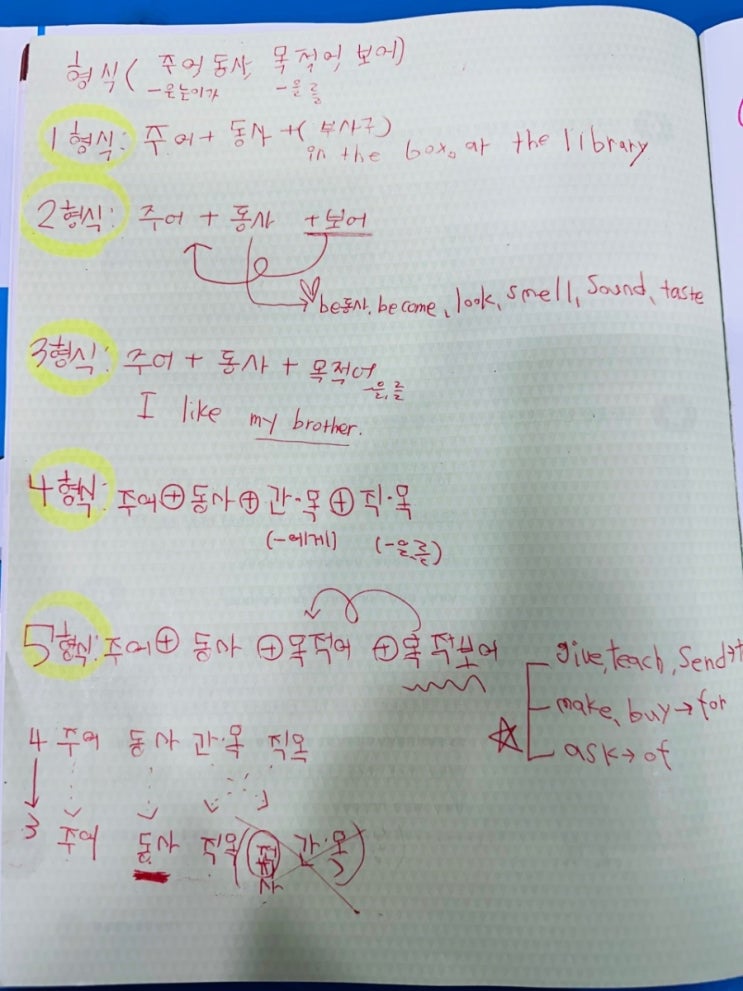 형식( 주어 동사, 목적어 보어)
-은는이가 -을를
1형식: 주어 + 동사 + (부사구)
in the box, at the library
2형식: 주어 + 동사 + 보어
be동사, become, look, smell, sound, taste
3형식: 주어 + 동사 + 목적어
-을,를
I like my brother.
4형식: 주어 + 동사 + 간·목 + 직·목
(-에게) (-을,를)
5형식: 주어 + 동사 + 목적어 + 목적보어
give, teach, send →
make, buy → for
ask → of
4 주어 동사 간·목 직목
3 주어 동사 직목 (전치사 간·목)